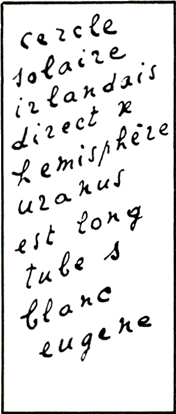 cercle
solaire
irlandais
direct x
hemisphère
uranus
est long
tube s
blanc
eugene